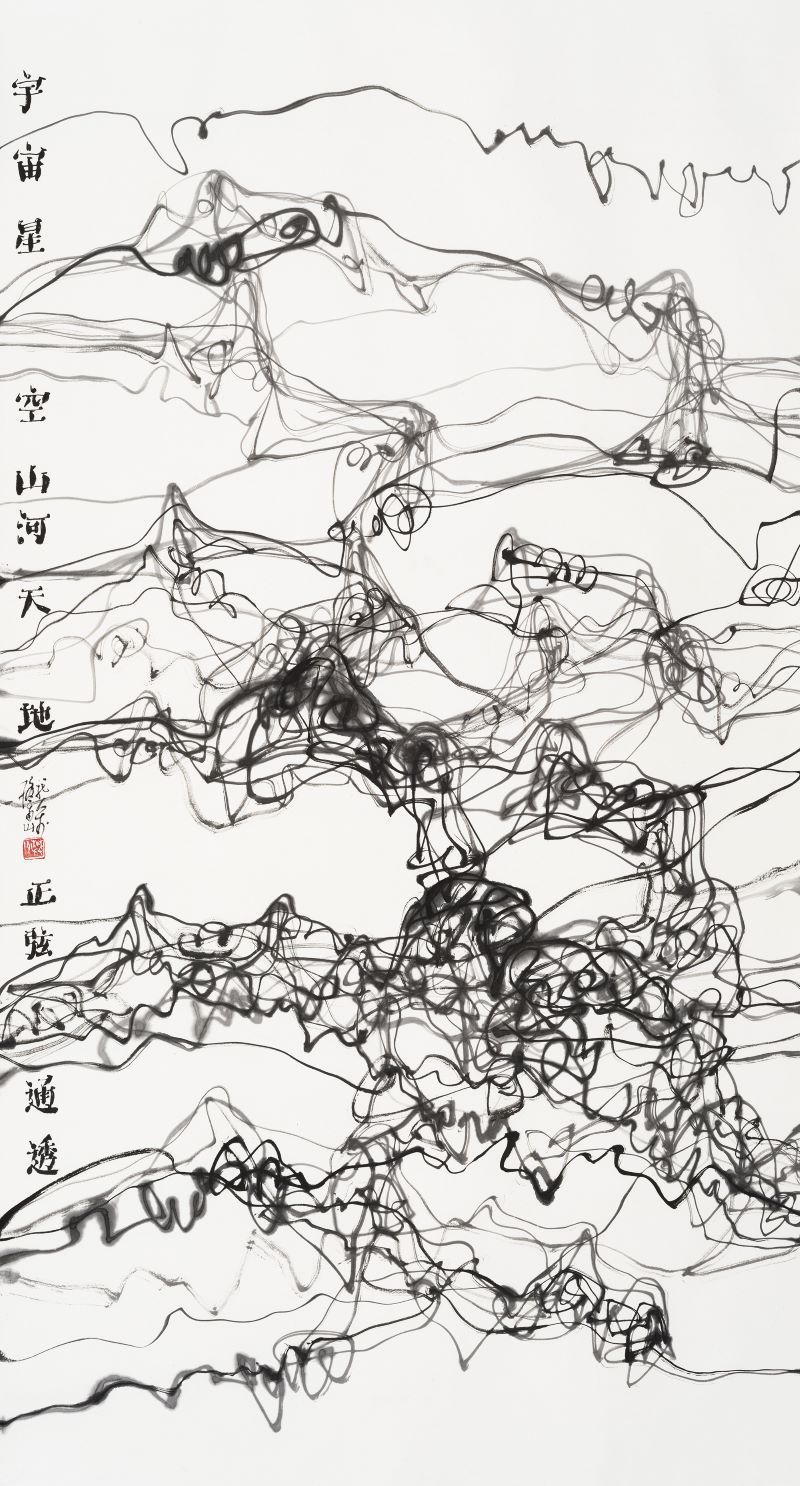 宇宙星空山河天地
正弦通透